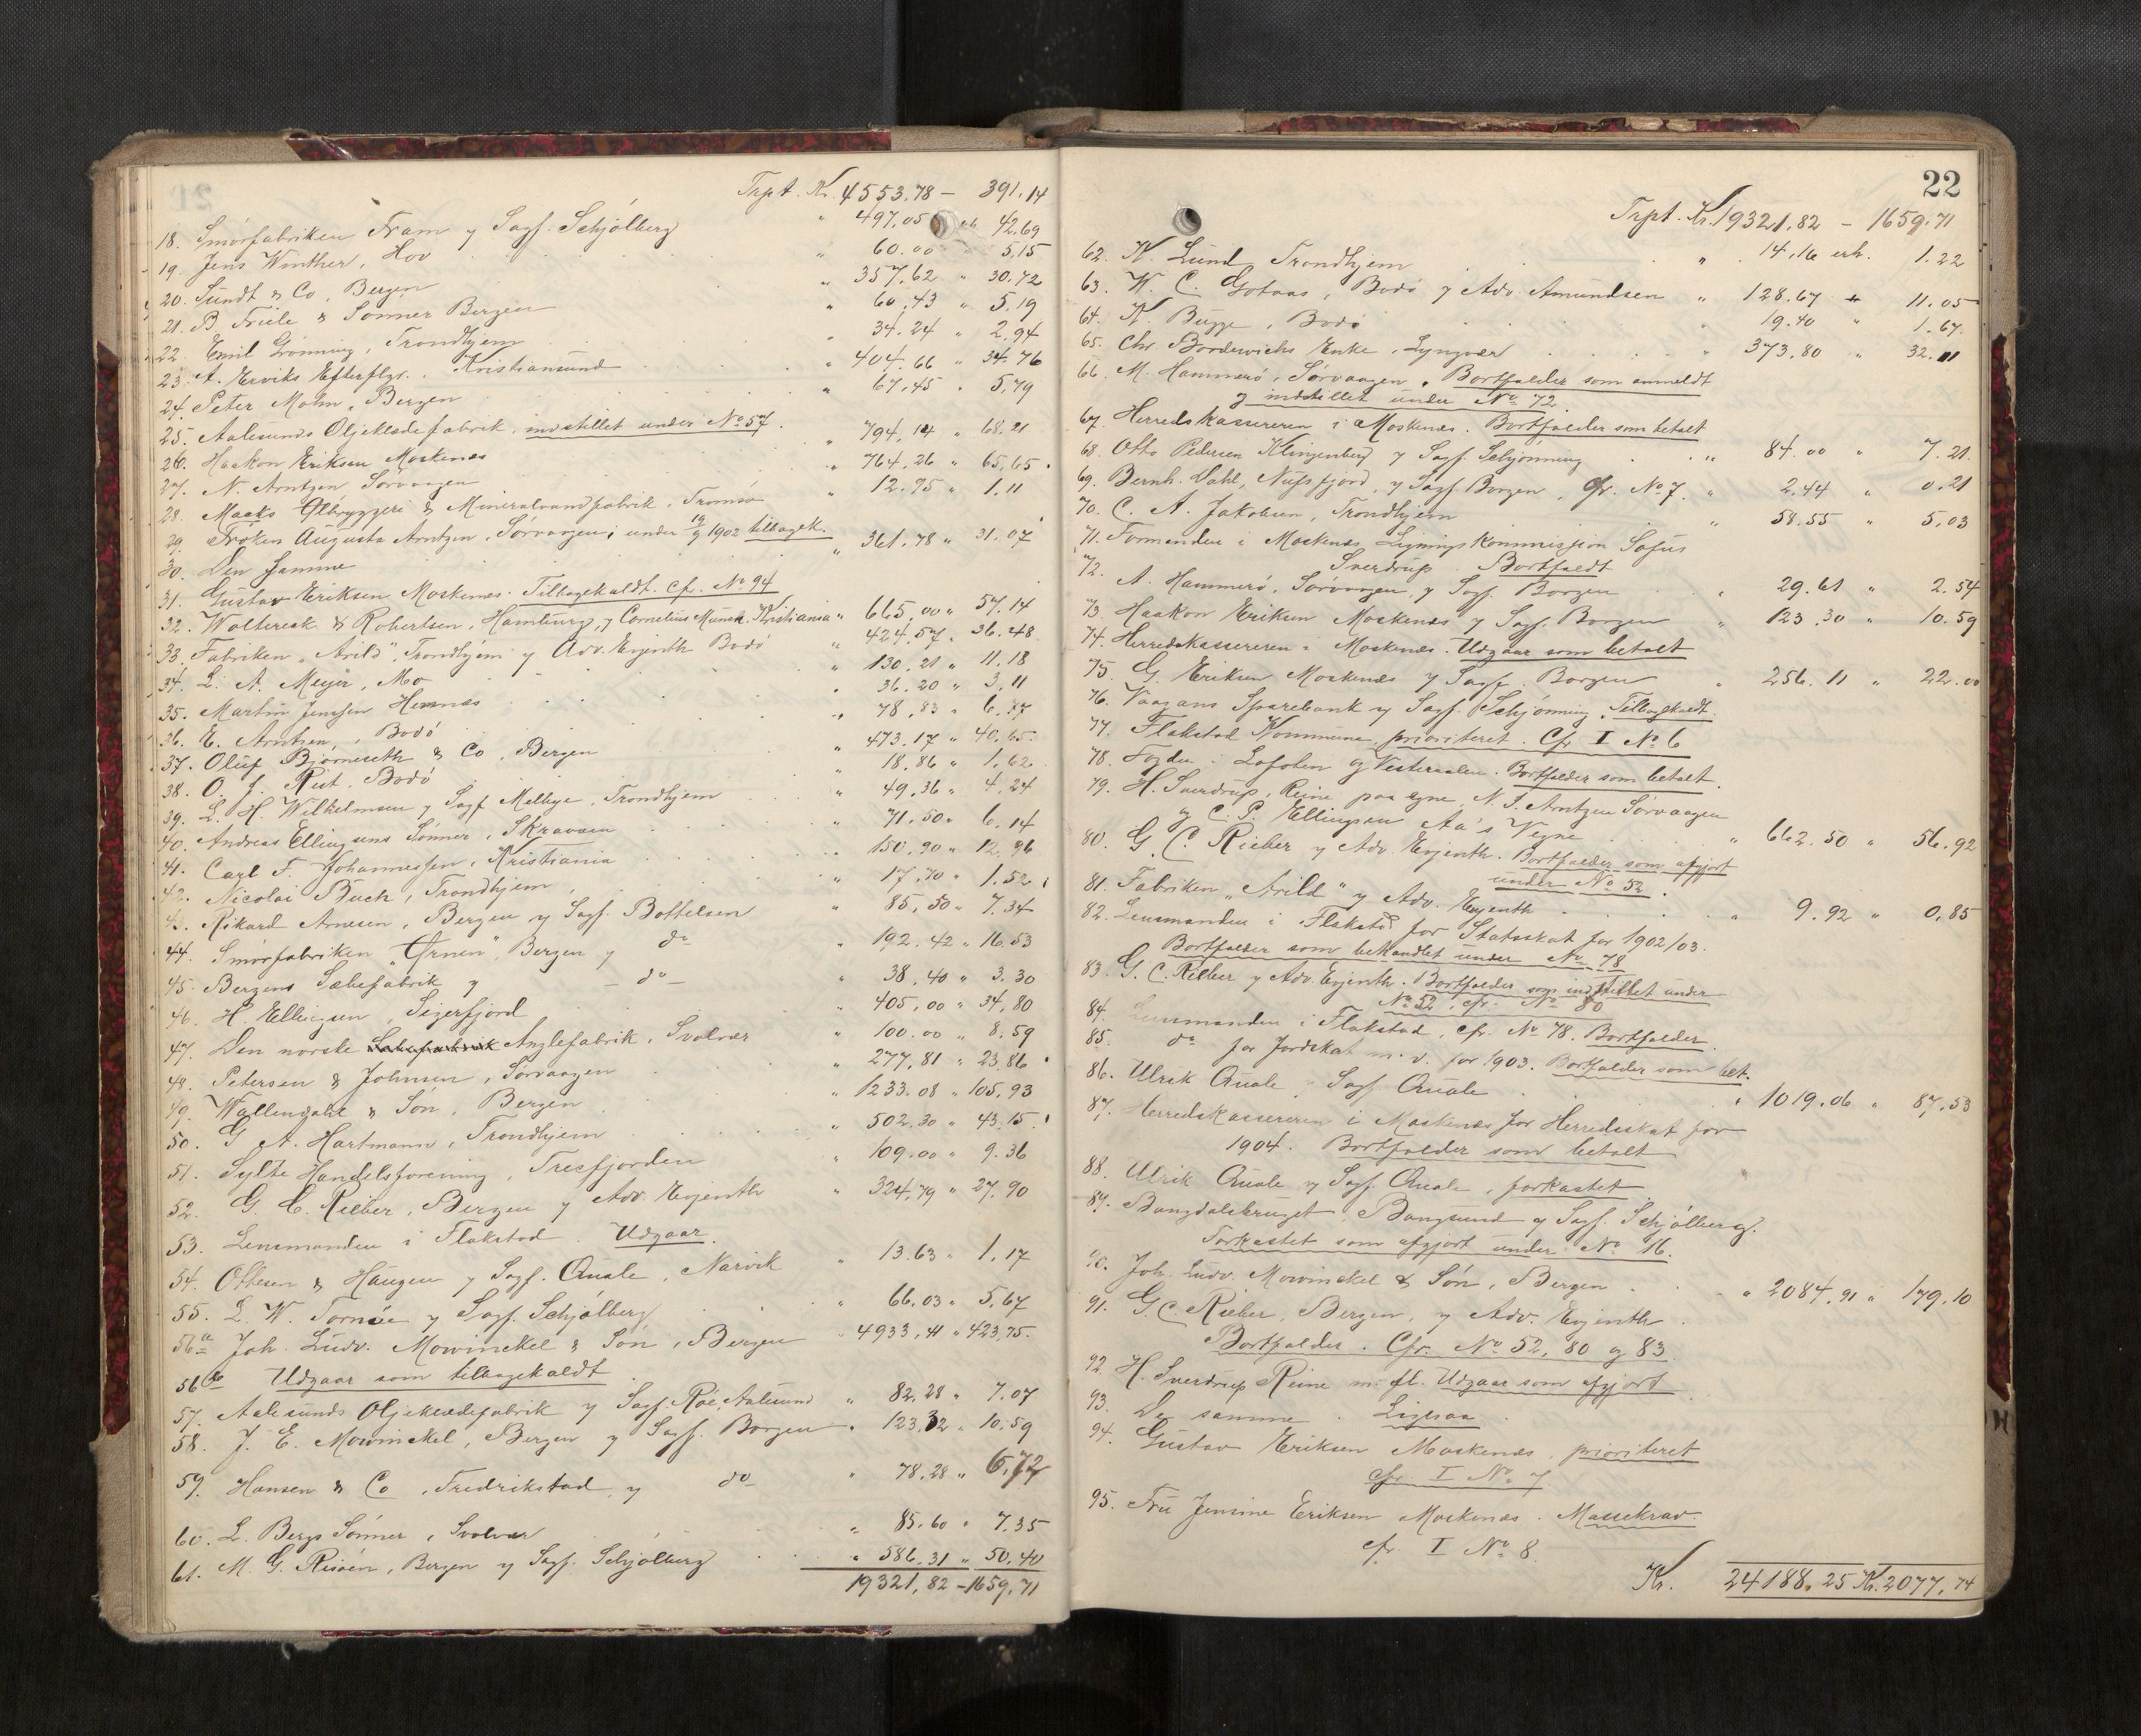 Trpt. Kr. 4553.78 — 391.14
18. Smørfabriken Fram v Sagf. Schjølberg " 497.05 erh. 42.69
19. Jens Winther, Hov " 60.00 5,15
20. Sundt & Co, Bergen " 357.62 " 30.72
21. B. Friele & Sønner Bergen " 60.43 " 5.19
22. Emil Grønning, Trondhjem " 34.24 " 2.94
23. A. Erviks Efterflgr., Kristiansund " 404.66 " 34.76
24. Peter Mohn, Bergen " 67.45 " 5.79
25. Aalesunds Oljeklædefabrik, indstillet under No 57.
26. Haakon Eriksen Moskenes " 794.14 " 68.21
27. N. Arntzen Sørvaagen " 764.26 " 65.65
28. Macks Ølbryggeri & Mineralvandfabrik, Tromsø " 12.95 " 1.11
29. Frøken Augusta Arntzen, Sørvaagen; under 19/9 1902 tilbagek.
30. Den samme " 361.78 " 31.07
31. Gustav Eriksen Moskenes. Tilbagekaldt. cfr. No 94
32. Woltereck & Robertson, Hamburg, v Cornelius Munch, Kristiania " 665.00 " 57.14
33. Fabriken "Arild", Trondhjem v Adv. Evjenth Bodø " 424.57 " 36.48
34. L. A. Meyer, Mo " 130.21 " 11.18
35. Martin Jenssen Hemnes " 36.20 " 3.11
36. E. Arntsen, Bodø " 78.83 " 6.77
37. Oluf Bjørneseth & Co, Bergen " 473.17 " 40.65
38. O. J. Rist. Bodø " 18.86 " 1.62
39. L. H. Wilhelmsen v Sagf Melbye, Trondhjem " 49.36 " 4.24
40. Andreas Ellingsens Sønner, Skraaven " 71.50 " 6.14
41. Carl F. Johannessen, Kristiania " 150.90 " 12.96
42. Nicolai Buch, Trondhjem " 17.70 " 1.52
43. Rikard Arnesen, Bergen v Sagf. Bottelsen " 85.50 " 7.34
44. Smørfabriken "Ørnen", Bergen v do " 192.42 " 16.53
45. Bergens Sæbefabrik v — do — " 38.40 " 3.30
46. H. Ellingsen, Sigerfjord " 405.00 " 34.80
47. Den norske Anglefabrik, Svolvær " 100.00 " 8.59
48. Petersen & Johnsen, Sørvaagen " 277.81 " 23.86
49. Wallendahl & Søn, Bergen " 1233.08 " 105.93
50. G A. Hartmann, Trondhjem " 502.30 " 43.15
51. Sylte Handelsforening, Tresfjorden " 109.00 " 9.36
52. G. C. Rieber, Bergen v Adv. Evjenth " 324.79 " 27.90
53. Lensmanden i Flakstad. Udgaar.
54. Ottesen & Haugen v Sagf. Quale, Narvik " 13.63 " 1.17
55. L. W. Tornøe v Sagf. Schjølberg " 66.03 " 5.67
56a Joh. Ludv. Mowinckel & Søn, Bergen " 4933.41 " 423.75
56b Udgaar som tilbagekaldt
57. Aalesunds Oljeklædefabrik v Sagf. Roe, Aalesund " 82.28 " 7.07
58. J. E. Mowinckel, Bergen v Sagf. Borgen " 123.32 " 10.59
59. Hansen & Co, Fredrikstad v do " 78.28 " 6.72
60. L. Bergs Sønner, Svolvær " 85.60 " 7.35
61. M. G. Risøen, Bergen v Sagf. Schjølberg " 586.31 " 50.40
19321,82 — 1659,71
22
Trpt. Kr. 19321.82 — 1659.71
62. N. Lund Trondhjem " 14.16 erh. 1.22
63. W. C. Gotaas, Bodø v Adv. Amundsen " 128.67 " 11.05
64. N. Bugge, Bodø " 19.40 " 1.67
65. Chr. Bordewichs Enke, Lyngvær " 373.80 " 32.11
66. M. Hammerø, Sørvaagen. Bortfalder som anmeldt
og indstillet under No 72.
67. Herredskassereren i Moskenes. Bortfalder som betalt
68. Otto Pedersen Klingenberg v Sagf. Schjønning " 84.00 " 7.21
69. Bernh. Dahl, Nufsfjord, v Sagf. Borgen, Cfr. No 7. " 2.44 " 0.21
70. C. A. Jakobsen, Trondhjem " 58.55 " 5.03
71. Formanden i Moskenes Ligningskommission Sofus
Sverdrup. Bortfaldt
72. A. Hammerø, Sørvaagen, v Sagf. Borgen " 29.61 " 2.54
73. Haakon Eriksen Moskenes v Sagf. Borgen " 123.30 " 10.59
74. Herredskassereren i Moskenes. Udgaar som betalt
75. G. Eriksen Moskenes v Sagf. Borgen " 256.11 " 22.00
76. Vaagans Sparebank v Sagf. Schjønning. Tilbagekaldt.
77. Flakstad Kommune prioriteret. Cfr I No 6
78. Fogden i Lofoten og Vesteraalen. Bortfalder som betalt.
79. H. Sverdrup, Reine paa egne, N. J. Arntzen Sørvaagen
og C. P. Ellingsen Aa's Vegne " 662.50 " 56.92
80. G. C. Rieber v Adv. Evjenth. Bortfalder som afgjort
under No 52.
81. Fabriken "Arild" v Adv. Evjenth " 9.92 " 0.85
82. Lensmanden i Flakstad for Statsskat for 1902/03.
Bortfalder som behandlet under No 78
83. G. C. Rieber v Adv. Evjenth. Bortfalder som indstillet under
No 52, cfr. No 80
84. Lensmanden i Flakstad, cfr. No 78. Bortfalder.
85. do for Jordskat m. v. for 1903. Bortfalder som bet.
86. Ulrik Quale v Sagf Quale " 1019.06 " 87.53
87. Herredskassereren i Moskenes for Herredsskat for
1904. Bortfalder som betalt
88. Ulrik Quale v Sagf. Quale, forkastet
89. Bangdalsbruget, Bangsund v Sagf. Schjølberg.
Forkastet som afgjort under No 16.
90. Joh. Ludv. Mowinckel & Søn, Bergen " 2084.91 " 179.10
91. G. C. Rieber, Bergen, v Adv. Evjenth.
Bortfalder. Cfr. No 52, 80 og 83
92. H. Sverdrup Reine m. fl. Udgaar som afgjort
93. De samme. Ligesaa.
94. Gustav Eriksen Moskenes, prioriteret
cfr. I No 7
95. Fru Jensine Eriksen Moskenes. Massekrav.
cfr. I No 8.
Kr. 24188.25 Kr. 2077.74